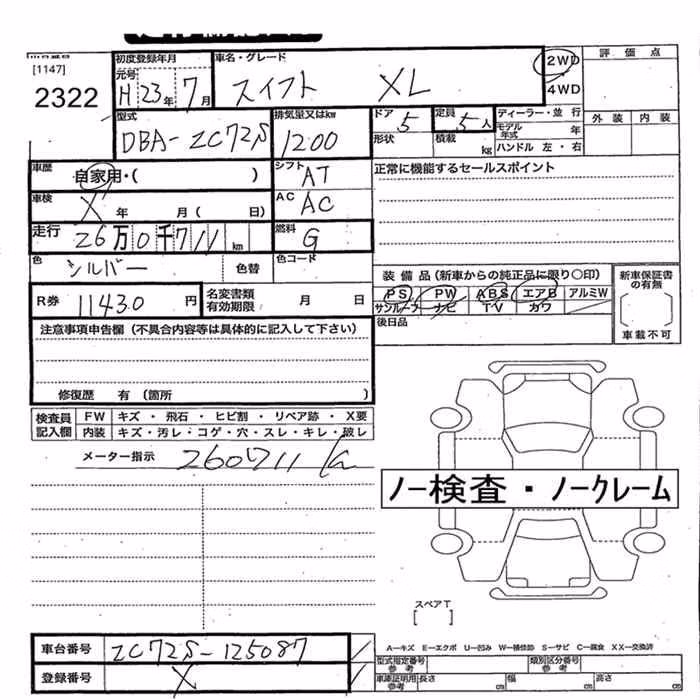 [1147]
2322
初度登録年月
元号
H 23年 7月
車名・グレード
スイフト XL
2WD
4WD
評価点
外装 内装
型式
DBA-ZC72S
排気量又はkw
1200
ドア 5
形状
定員 5人
積載 kg
ディーラー・並行
モデル年式 年
ハンドル 左・右
車歴
自家用・( )
シフト
AT
正常に機能するセールスポイント
車検
X 年 月( 日)
AC
AC
走行
26万0千711km
燃料
G
色
シルバー
色替
色コード
装備品(新車からの純正品に限り〇印)
PS PW ABS エアB アルミW
サンルーフ ナビ TV カワ
新車保証書の有無
[ ]
車載不可
R券
11430円
名変書類有効期限
月 日
後日品
注意事項申告欄(不具合内容等は具体的に記入して下さい)
修復歴 有(箇所 )
検査員記入欄
FW キズ・飛石・ヒビ割・リペア跡・X要
内装 キズ・汚レ・コゲ・穴・スレ・キレ・破レ
メーター指示
260711 km
ノー検査・ノークレーム
スペアT
[ ]
車台番号
ZC72S-125087
登録番号
X
A-キズ E-エクボ U-凹み W-補修跡 S-サビ C-腐食 XX-交換済
型式指定番号
参考
類別区分番号
参考
車庫証明用
参考
長さ cm
幅 cm
高さ cm